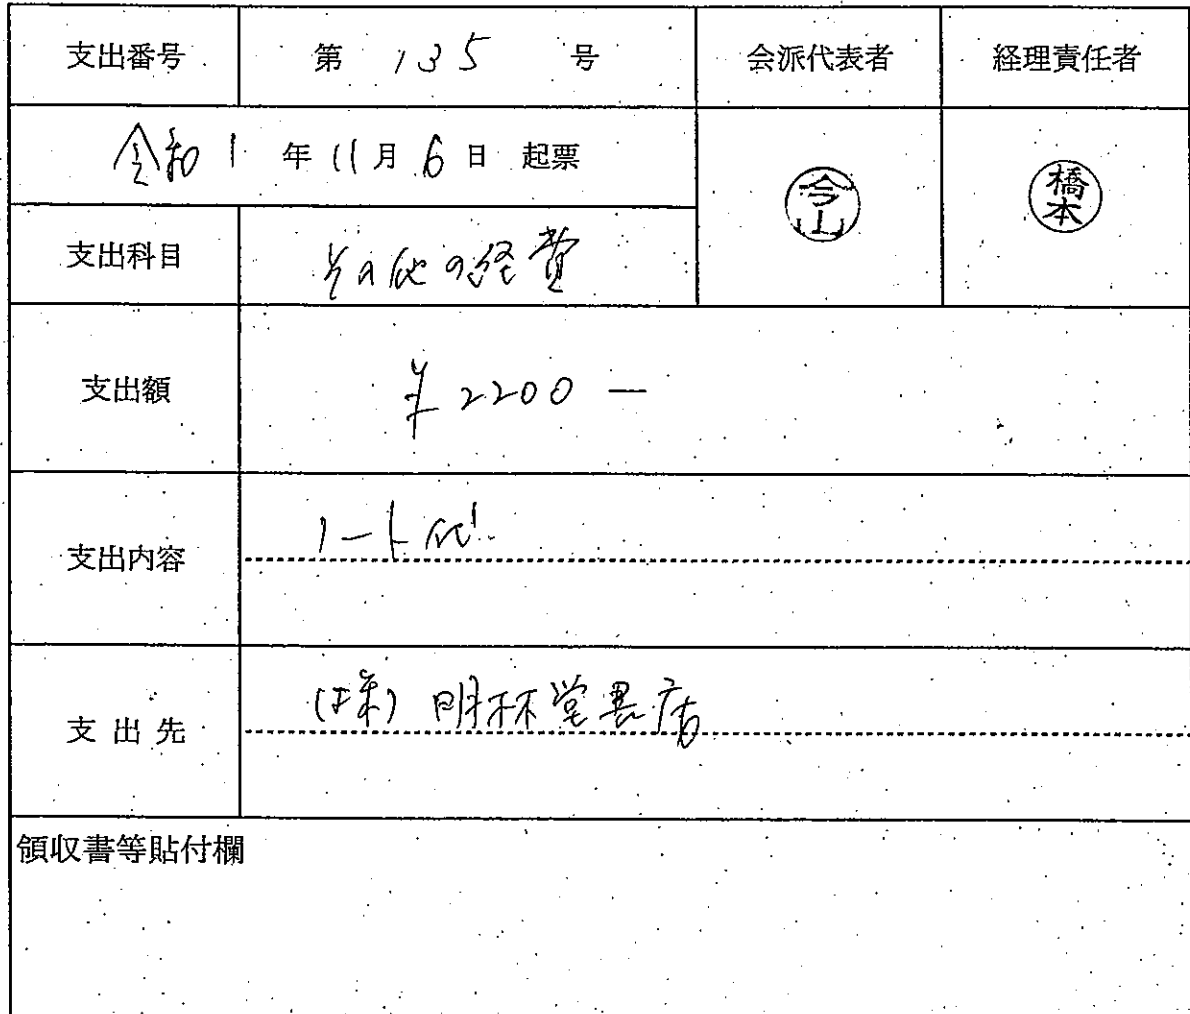 支出番号 第 135 号 会派代表者 経理責任者
令和 1 年 11 月 6 日 起票
今山 橋本
支出科目 その他の経費
支出額 ¥2200―
支出内容 ノート代
支出先 (株)明林堂書店
領収書等貼付欄